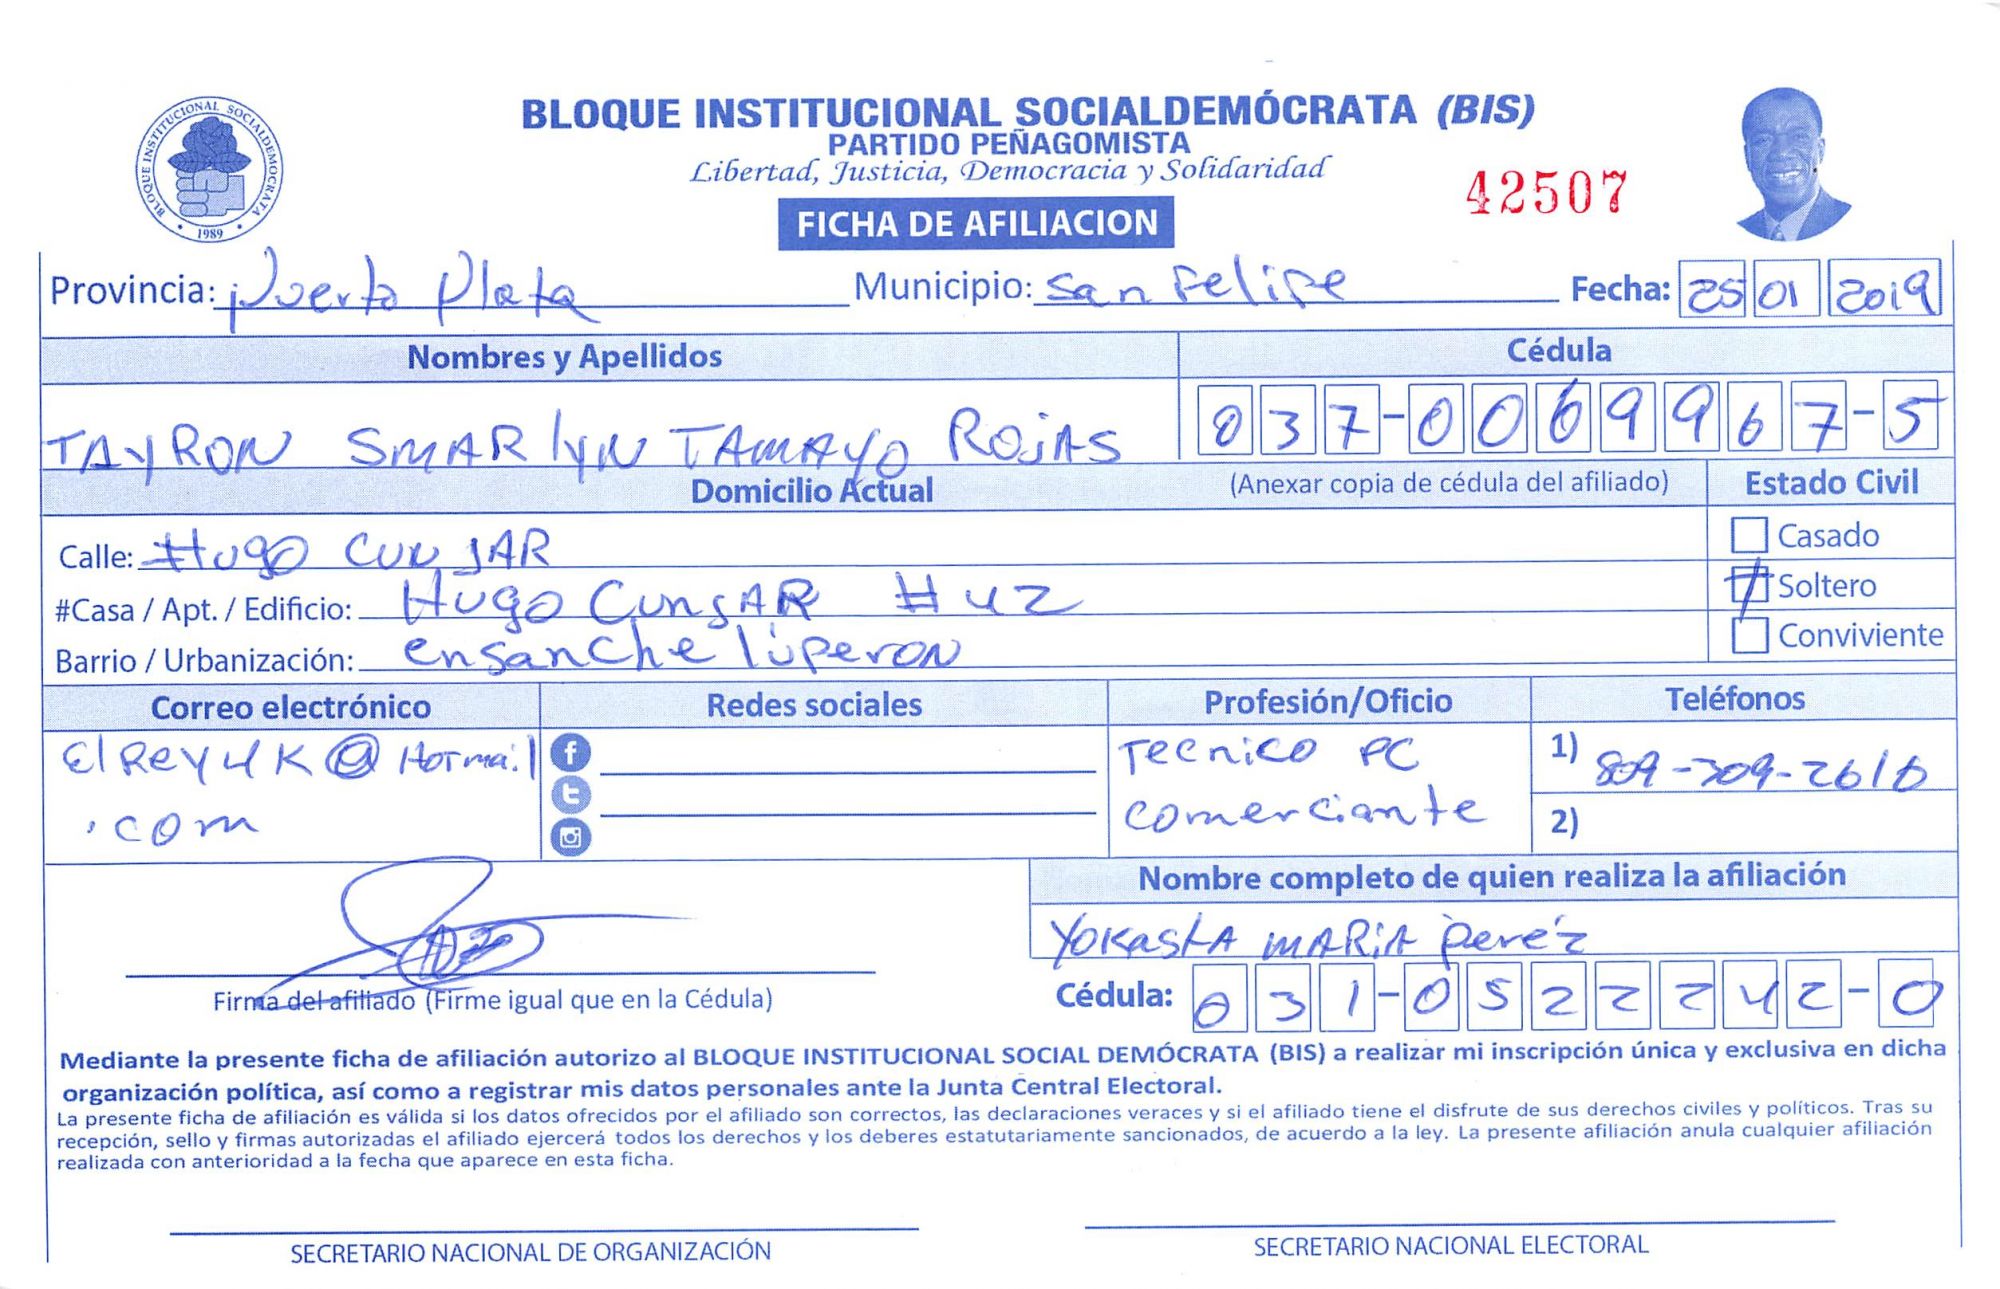 BLOQUE INSTITUCIONAL SOCIALDEMOCRATA
1989
BLOQUE INSTITUCIONAL SOCIALDEMÓCRATA (BIS)
PARTIDO PEÑAGOMISTA
Libertad, Justicia, Democracia y Solidaridad
FICHA DE AFILIACION
42507
Provincia: puerto plata Municipio: san Felipe Fecha: 25 01 2019
Nombres y Apellidos Cédula
TAYRON SMARlYN TAMAYO ROjAS 037-0069967-5
Domicilio Actual (Anexar copia de cédula del afiliado) Estado Civil
Calle: Hugo CUNJAR Casado
#Casa / Apt. / Edificio: Hugo CunsAR #42 Soltero
Barrio / Urbanización: ensanche luperON Conviviente
Correo electrónico Redes sociales Profesión/Oficio Teléfonos
ElRey4K@Hotmail Tecnico PC 1) 809-709-2616
.com comerciante 2)
Nombre completo de quien realiza la afiliación
YokastA MARiA pereź
Firma del afiliado (Firme igual que en la Cédula) Cédula: 031-0522242-0
Mediante la presente ficha de afiliación autorizo al BLOQUE INSTITUCIONAL SOCIAL DEMÓCRATA (BIS) a realizar mi inscripción única y exclusiva en dicha
organización política, así como a registrar mis datos personales ante la Junta Central Electoral.
La presente ficha de afiliación es válida si los datos ofrecidos por el afiliado son correctos, las declaraciones veraces y si el afiliado tiene el disfrute de sus derechos civiles y políticos. Tras su
recepción, sello y firmas autorizadas el afiliado ejercerá todos los derechos y los deberes estatutariamente sancionados, de acuerdo a la ley. La presente afiliación anula cualquier afiliación
realizada con anterioridad a la fecha que aparece en esta ficha.
SECRETARIO NACIONAL DE ORGANIZACIÓN SECRETARIO NACIONAL ELECTORAL